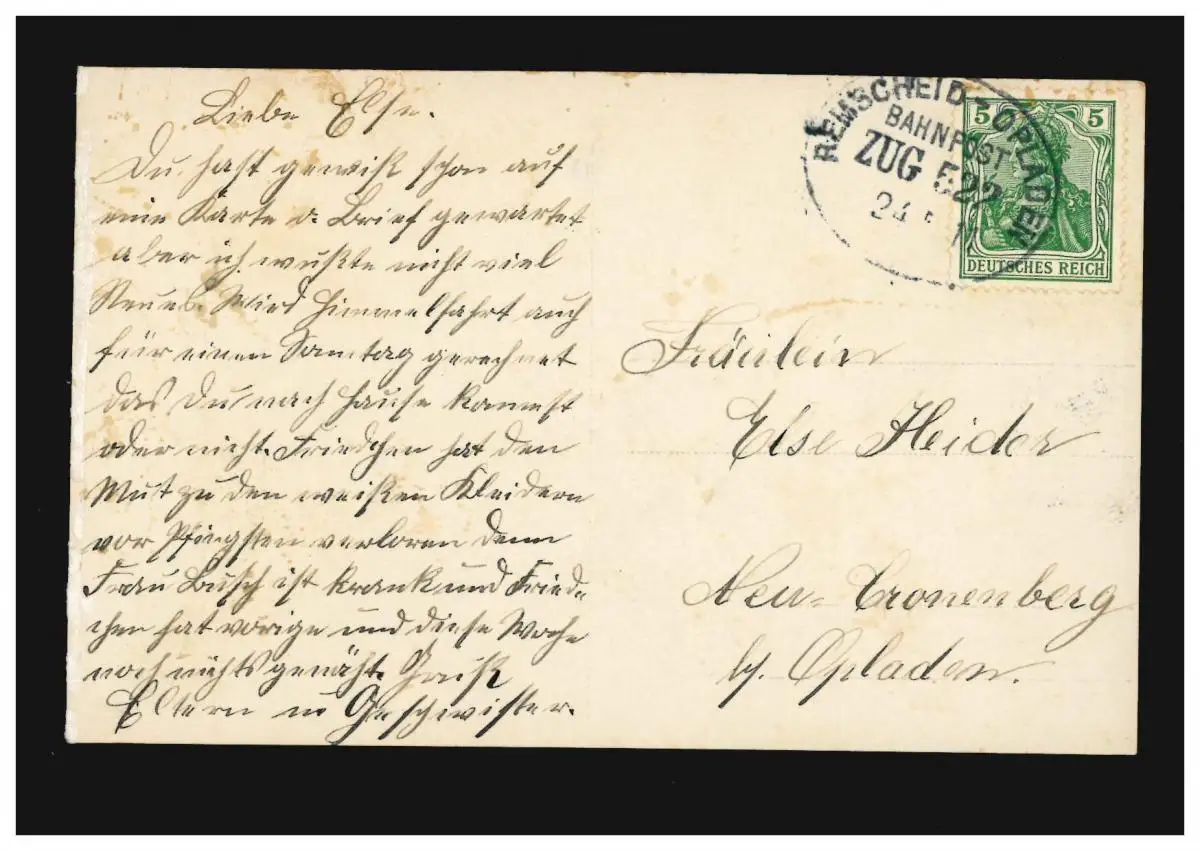 Liebe Else.
Du hast gewiß schon auf
eine Karte o. Brief gewartet
aber ich wußte nicht viel
Neues. Wird Himmelfahrt auch
für einen Samtag gerechnet
das Du nach Hause kommst
oder nicht. Friedchen hat den
Mut zu den weißen Kleidern
vor Pfingsten verloren denn
Frau Busch ist krank und Fried-
chen hat vorige und diese Woche
noch nichts genäht. Gruß
Eltern u Geschwister.
REMSCHEID - OPLADEN
BAHNPOST
ZUG 522
24 11
5 5
DEUTSCHES REICH
Fräulein
Else Heider
Neu-Cronenberg
b/. Opladen.